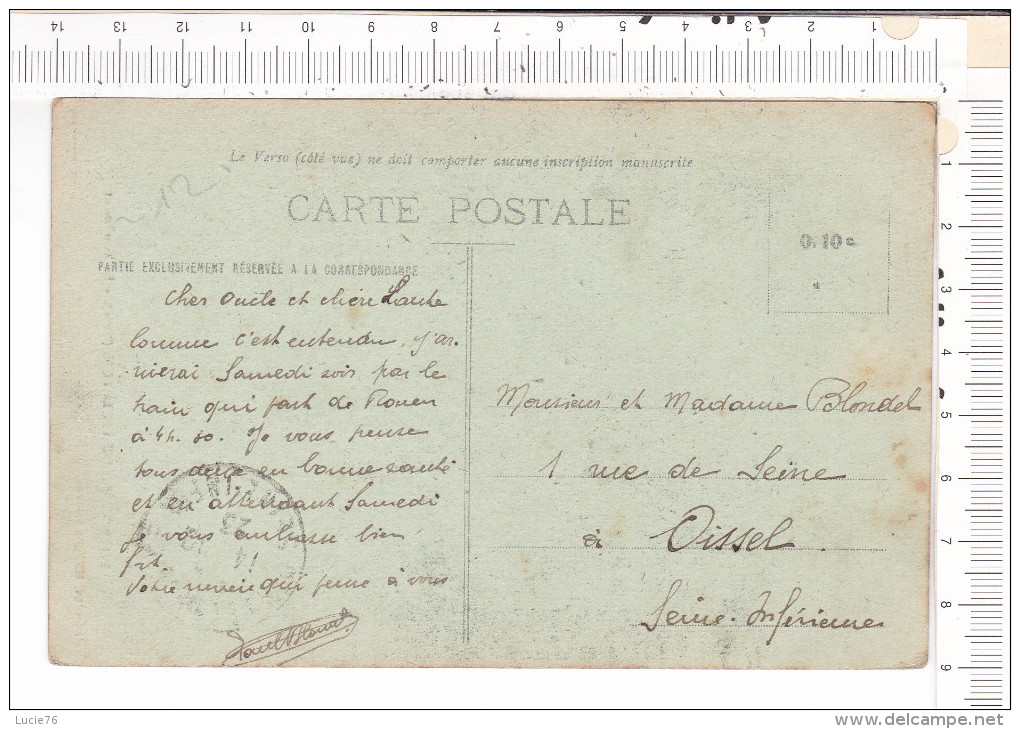 Le Verso (côté vue) ne doit comporter aucune inscription manuscrite
CARTE POSTALE
0.10 c
PARTIE EXCLUSIVEMENT RÉSERVÉE A LA CORRESPONDANCE
Cher Oncle et chère Tante
Comme c'est entendu, j'ar-
riverai Samedi soir par le
train qui part de Rouen
à 4h. 30. Je vous pense
tous deux en bonne santé
et en attendant Samedi
Je vous embrasse bien
fort.
Votre neveu qui pense à vous
Monsieur et Madame Blondel
1 rue de Seine
à Oissel
Seine-Inférieure
14 13 12 11 10 9 8 7 6 5 4 3 2 1
1
2
3
4
5
6
7
8
9
Lucie76
www.delcampe.net